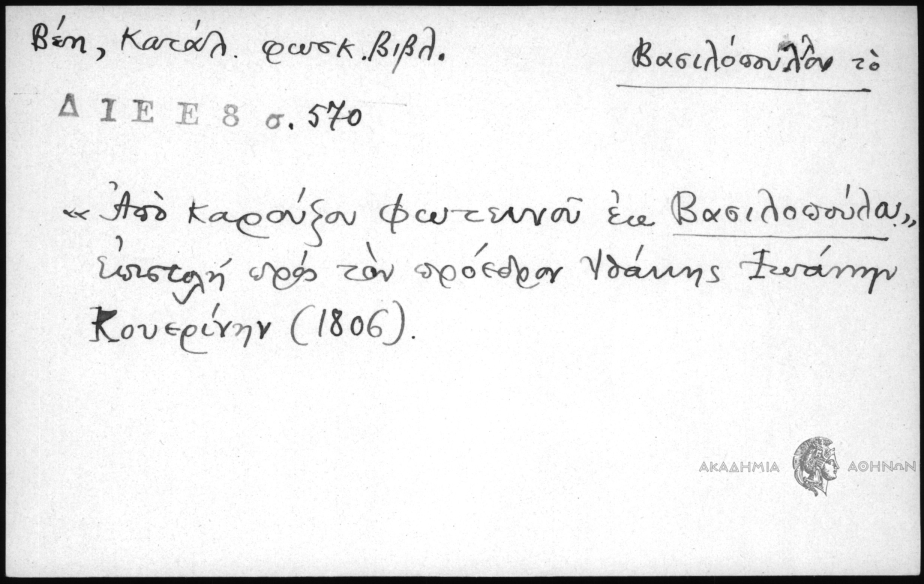 Βέη, Κατάλ. φωσκ. Βιβλ.
Βασιλόπουλον τὸ
Δ Ι Ε Ε 8 σ. 570
« Ἀπὸ καρούζου Φωτεινοῦ ἐκ Βασιλοπούλου.»
Ἐπιστολή πρὸς τὸν πρόεδρον Ἰθάκης Ἰωάννην
Κουερίνην (1806).
ΑΚΑΔΗΜΙΑ ΑΘΗΝΩΝ